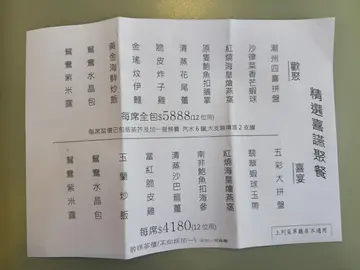 精選喜宴聚餐
歡聚
潮州四喜拼盤
沙律菜香芒蝦球
紅燒海皇燴燕窩
原隻鮑魚扣膳掌
清蒸花尾躉
脆皮炸子雞
金瑤炆伊麵
黃金海鮮炒飯
鴛鴦水晶包
鴛鴦紫米露
每席全包$5888(12位用)
喜宴
五彩大拼盤
翡翠蝦球玉帶
紅燒海皇燴燕窩
南非鮑魚扣海參
清蒸沙巴龍躉
當紅脆皮雞
玉蘭炒飯
鴛鴦水晶包
鴛鴦紫米露
每席$4180(12位用)
上列菜單廳房不適用